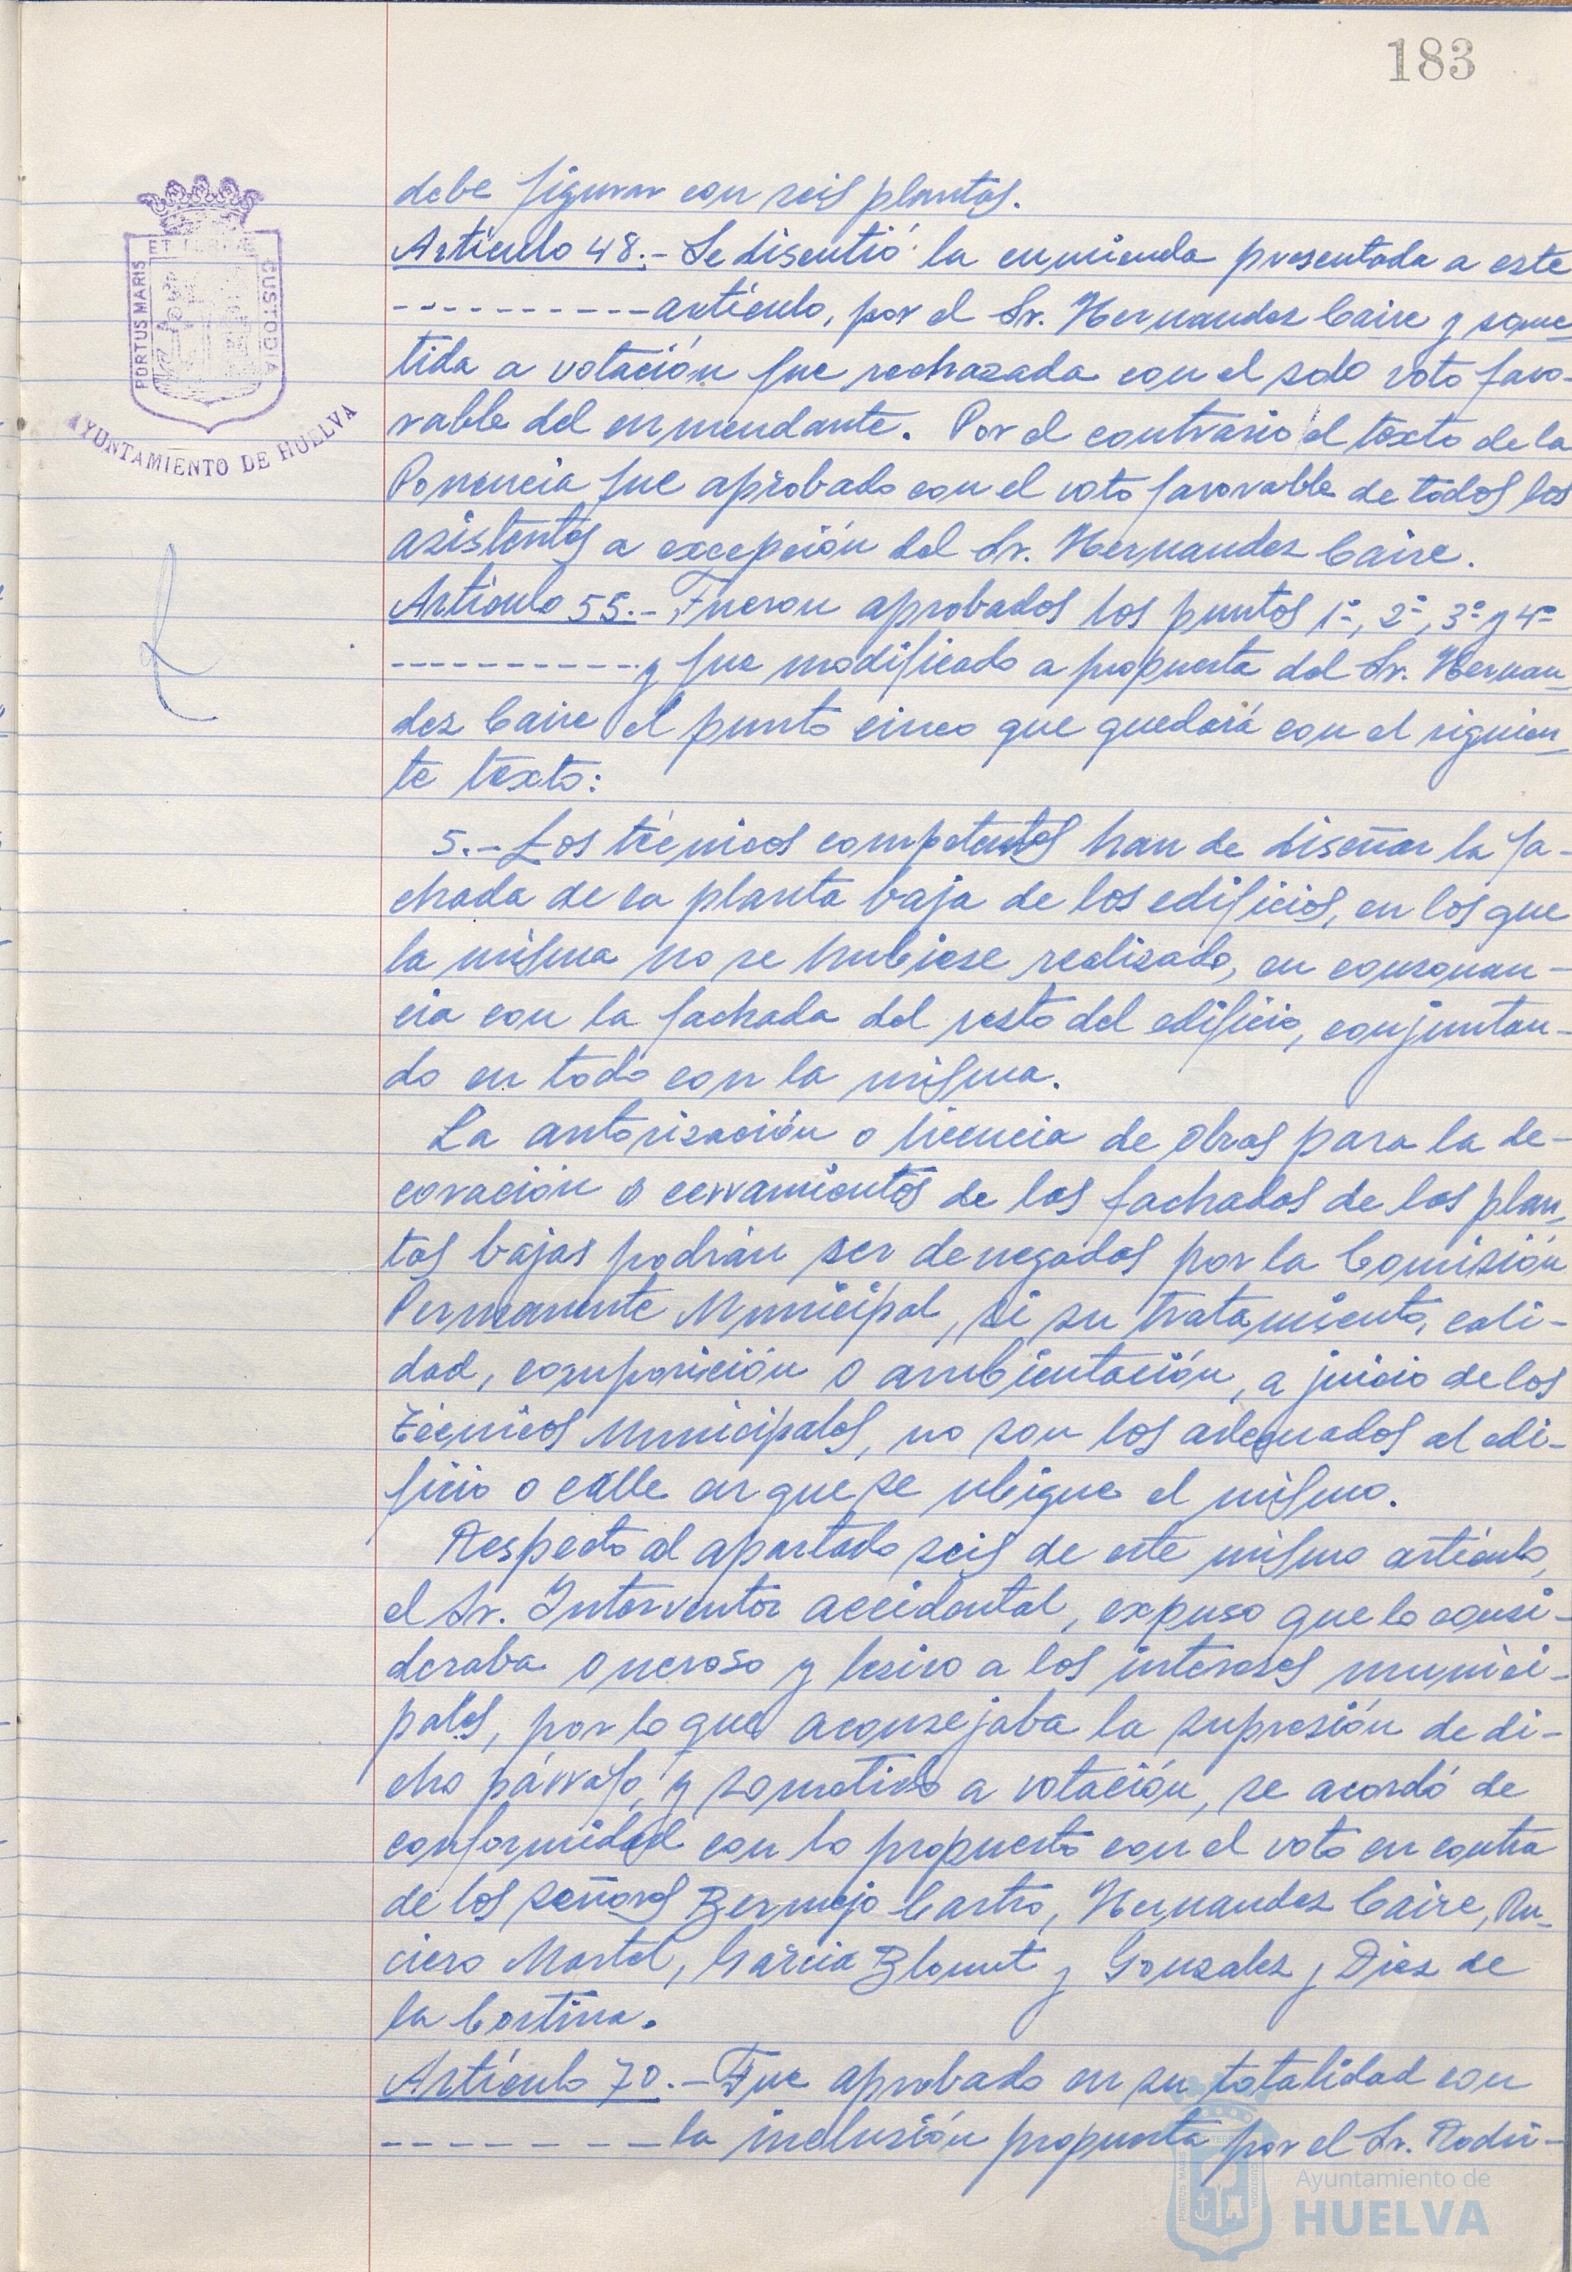 183
PORTUS MARIS ET TERRAE CUSTODIA
AYUNTAMIENTO DE HUELVA
debe figurar con seis plantas.
Artículo 48.- Se discutió la enmienda presentada a este
----------artículo, por el Sr. Hernandez Caire y some-
tida a votación fue rechazada con el solo voto favo-
rable del enmendante. Por el contrario el texto de la
Ponencia fue aprobado con el voto favorable de todos los
asistentes a excepción del Sr. Hernandez Caire.
Artículo 55.- Fueron aprobados los puntos 1º, 2º, 3º y 4º
-----------y fue modificado a propuesta del Sr. Hernan-
dez Caire el punto cinco que quedará con el siguien-
te texto:
5.- Los técnicos competentes han de diseñar la fa-
chada de la planta baja de los edificios, en los que
la misma no se hubiese realizado, en consonan-
cia con la fachada del resto del edificio, conjuntan-
do en todo con la misma.
La autorización o licencia de obras para la de-
coración o cerramientos de las fachadas de las plan-
tas bajas podrán ser denegados por la Comisión
Permanente Municipal, si su tratamiento, cali-
dad, composición o ambientación, a juicio de los
Técnicos Municipales, no son los adecuados al edi-
ficio o calle en que se ubique el mismo.
Respecto al apartado seis de este mismo artículo,
el Sr. Interventor accidental, expuso que lo consi-
deraba oneroso y lesivo a los intereses munici-
pales, por lo que aconsejaba la supresión de di-
cho párrafo, y sometido a votación, se acordó de
conformidad con lo propuesto con el voto en contra
de los señores Bermejo Castro, Hernandez Caire, Ru-
ciero Martel, García Blount y Gonzalez y Diez de
la Cortina.
Artículo 70.- Fue aprobado en su totalidad con
------- la inclusión propuesta por el Sr. Rodri-
Ayuntamiento de
HUELVA